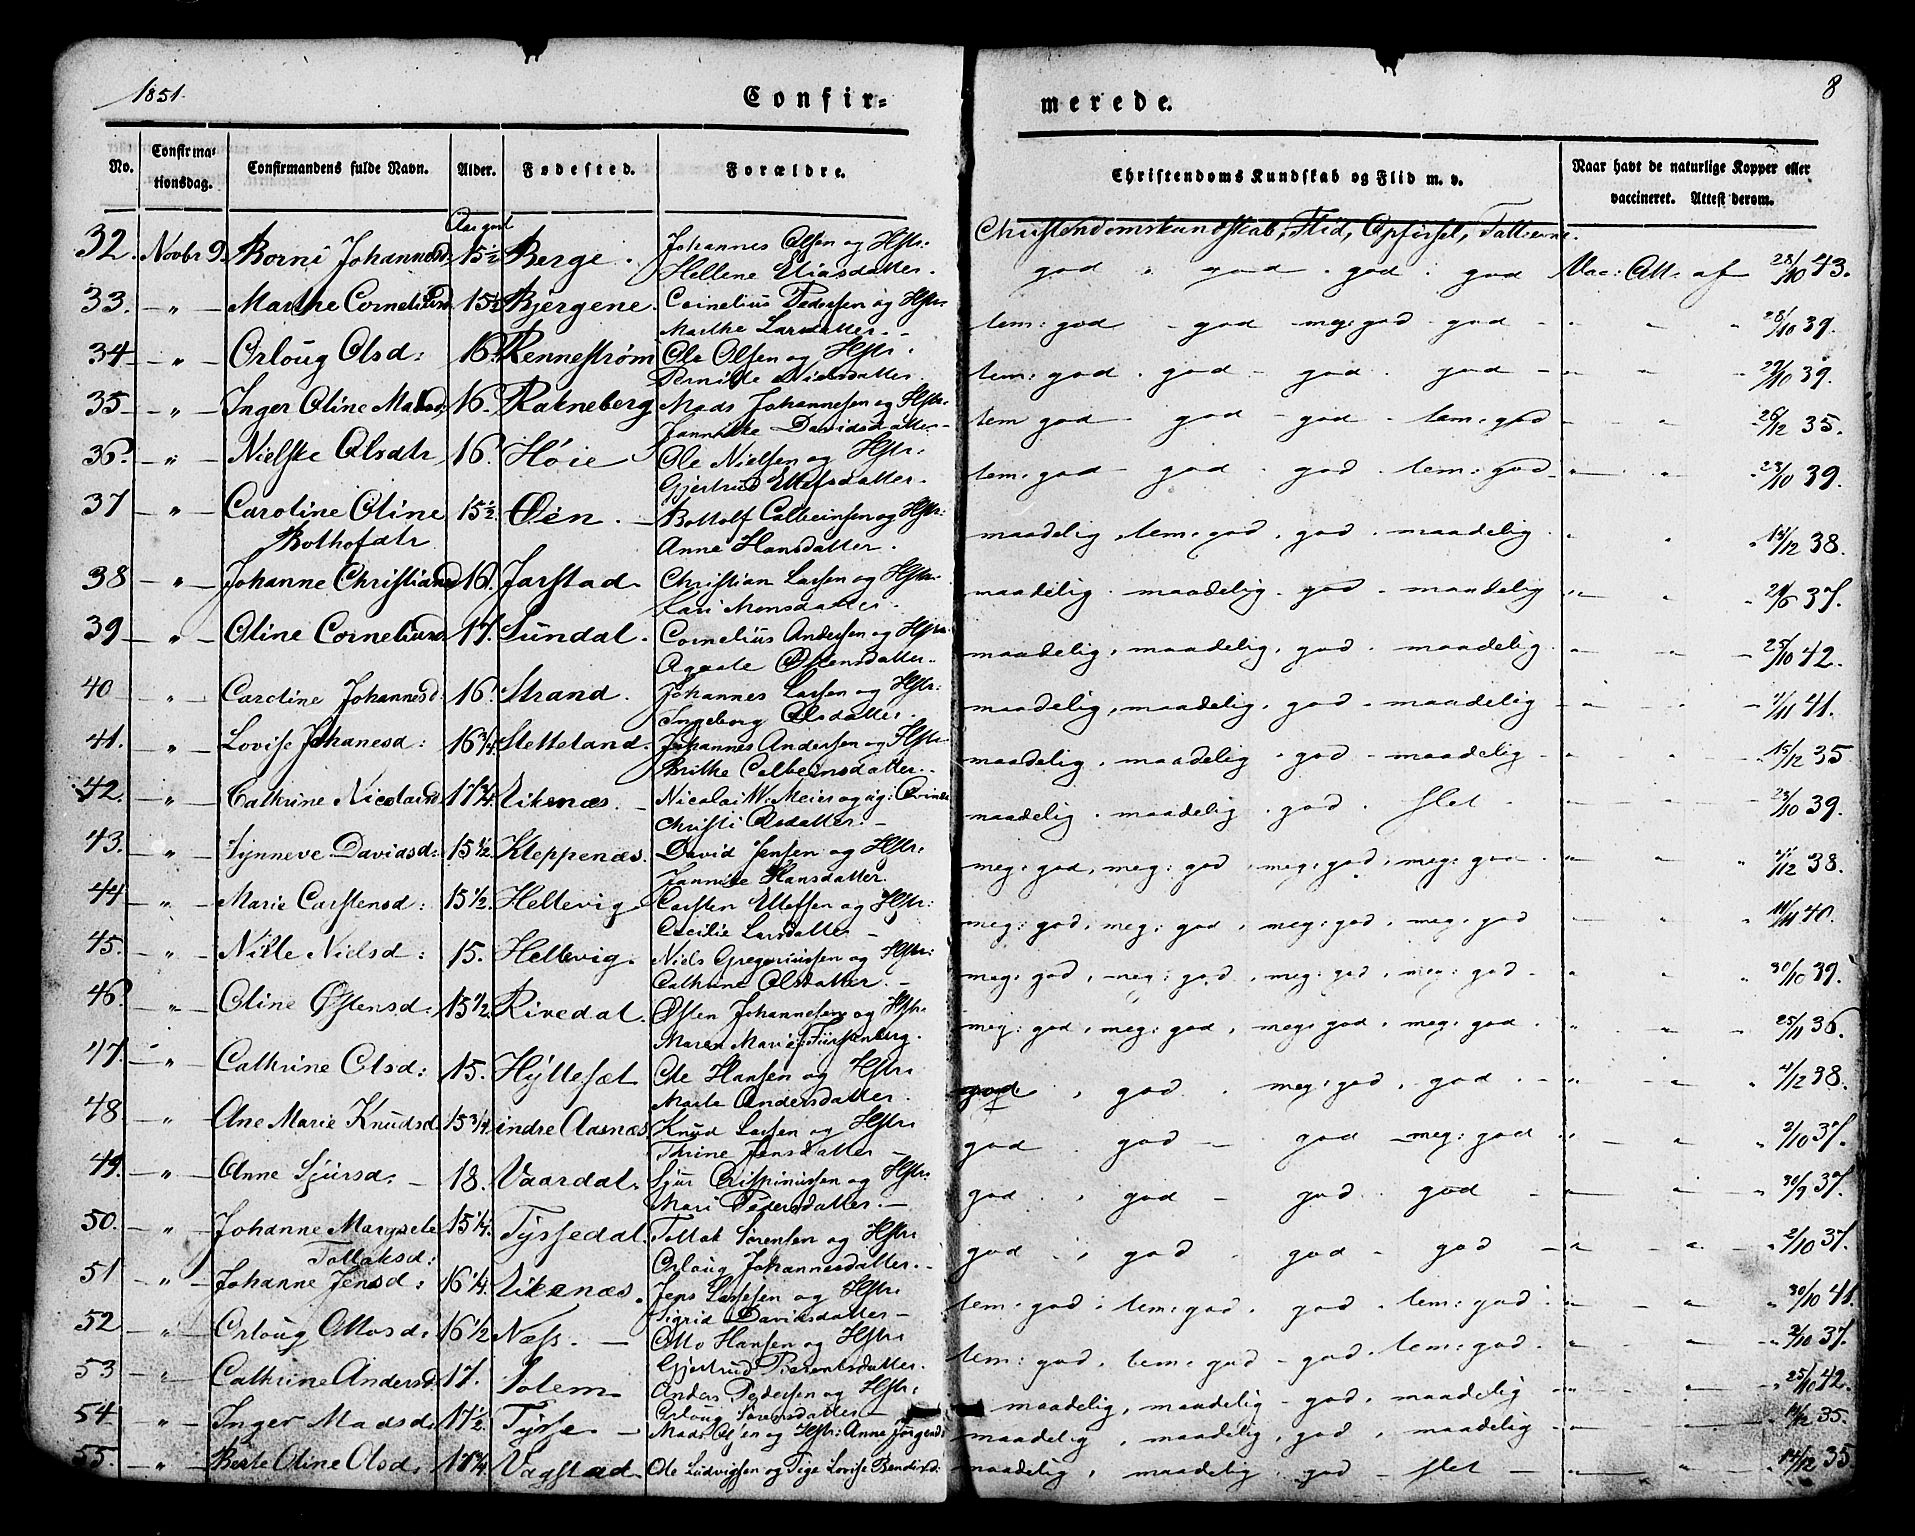 1851.
Confir-
merede.
8
No.
Confirma-
tionsdag.
Confirmandens fulde Navn.
Alder.
Fødested.
Forældre.
Christendoms Kundskab og Flid m. v.
Naar havt de naturlige Kopper eller
vaccineret. Attest derom.
Christendomskundskab, Flid, Opførsel,
32. Novbr 9. Borni Johannesd. 15½ Berge. Johannes Olsen og Hstr: god " god . god . god Vac: Att: af 28/10 43.
Hellene
33. — " — Marthe Corneliusd. 15½ Bjergene. Cornelius Pedersen og Hstr. tem: god - god meg: god - god - " " " 28/10 39.
Marthe Larsdatter. -
34 — " — Orloug Olsd: 16. Rennestrøm Ole Olsen og Hstr. tem: god . god - god . god - " " 29/10 39.
Pernille Nielsdatter.
35 — " — Inger Oline Madsd: 16. Rakneberg Mads Johannesen og Hstr. tem god - god - god - tem: god - " " 26/12 35.
Jannike Davidsdatter -
36. — " — Nielske Olsdtr 16. Høie Ole Nielsen og Hstr: tem: god - god . god . tem: god - " " 23/10 39.
Gjertrud Ellefsdatter.
37 — " — Caroline Oline 15½ Øen. — Bottolf Colbeinsen og Hstr: maadelig, tem: god, god . maadelig. " " 38.
Bothofdtr Anne Hansdatter.
38 — " — Johanne Christiansd 16. Jarstad. Christian Larsen og Hstr. maadelig . maadelig . god - maadelig " " 37.
Kari Monsdatter.
39 — " — Oline Corneliusd. 17. Sundal. Cornelius Andersen og Hstr. maadelig, maadelig, god . maadelig. " " 25/10 42.
Agaate Østensdatter.
40 — " — Caroline Johannesd. 16. Strand. Johannes Larsen og Hstr: maadelig, maadelig, god . maadelig - " " 41.
Ingeborg Olsdatter.
41. — " — Lovise Johanesd: 16¾ Stetteland. Johannes Andersen og Hstr. maadelig, maadelig . god - maadelig - " " 15/12 35
Brithe Colbeinsdatter. -
42. — " — Cathrine Nicolaisd. 17¾ Liknæs. — Nicolai W: Meier og maadelig . maadelig . god . slet . " 23/10 39.
Christi Olsdatter. -
43. — " — Synneve Davidsd: 15½ Kleppenæs. David Jensen og Hstr: meg: god, meg: god, meg: god, meg: god . " " 4/12 38.
Jannike Hansdatter.
44 — " — Marie Carstensd: 15½. Hellevig. Carsten Ellefsen og Hstr: meg: god, meg: god, meg: god, meg: god " " 11/11 40.
Cecilie Larsdatter -
45. — " — Nille Nielsd: 15. Hellevig. Niels Gregoriussen og Hstr: meg: god, meg: god, meg: god, meg: god - " " 30/10 39.
Cathrine Olsdatter. -
46. — " — Oline Østensd. 15½. Rivedal. Østen Johannesen og Hstr. meg: god, meg: god, meg: god, meg: god. " " 25/11 36.
Maren Marie Fürstenberg.
47. — " — Cathrine Olsd: 15. Hyllesæt Ole Hansen og Hstr: god , god . meg: god, god . - " " 4/12 38.
Marte Andersdatter.
48 — " — Ane Marie Knudsd. 15¾ indre Aasnæs. Knud Larsen og Hstr: god . god — god - meg: god " " 2/10 37.
Thrine Jensdatter -
49. — " — Anne Sjursd. - 18. Vaardal. Sjur Crispinussen og Hstr: god . , god - god . god - " " 30/9 37.
Mari Pedersdatter. -
50. — " — Johanne Margrete 15¼. Tyssedal. Tollak Sørensen og Hstr: god , god . god - god - " " 2/10 37.
Tollaksd: Orloug Johannesdatter. -
51 — " — Johanne Jensd: 16¼. Liknæs. Jens Larsen og Hstr: tem: god , tem: god . god . tem: god . " " 30/10 41.
Sigrid Davidsdatter -
52 — " — Orloug Ottosd. 16½ Næss. — Otto Hansen og Hstr: tem: god . tem: god - god . tem: god. - " " 2/10 37.
Gjertrud Berentsdatter.
53 — " — Cathrine Andersd. 17. Solem. Anders Pedersen og Hstr: maadelig, maadelig - god, maadelig - " " 25/10 42.
Orloug Sørensdatter -
54 — " — Inger Madsd. 17½ Tysse. — Mads Olsen og Hstr: Anne Jørgensd: maadelig , maadelig, god , maadelig - " " 14/12 35.
55. — " — Berte Oline Olsd. 17¾ Vagstad. Ole Ludvigsen og Pige Lovise Bendixd: maadelig , maadelig . god - slet — " " 14/12 35